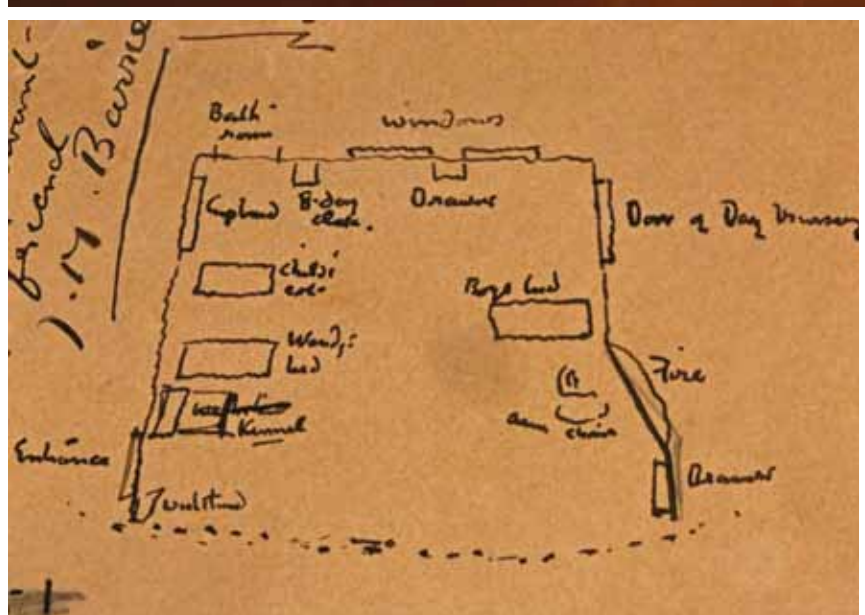 friend
J. M. Barrie
Bath
room
Windows
Cupboard
8-day
clock.
Drawers
Door of Day Nursery
Child's
cot
Boys bed
Wendy's
bed
Fire
Kennel
Arm chair
Entrance
Drawers